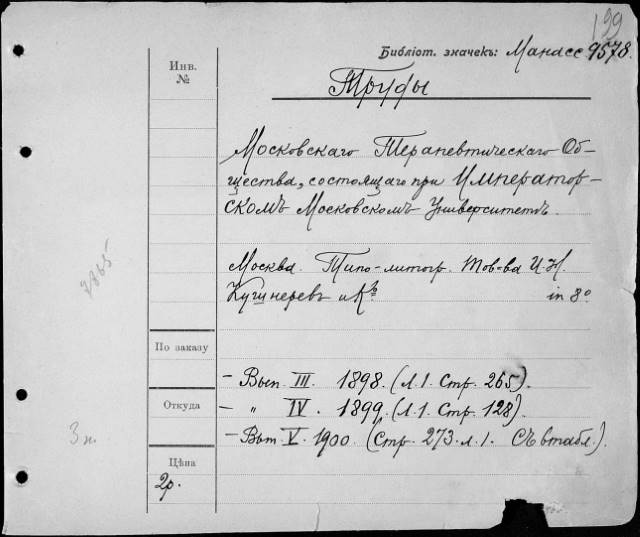 199
Библіот. значекъ: Манасс. 9578.
Инв.
№
Труды
Московскаго Терапевтическаго Об-
щества, состоящаго при Император-
скомъ Московскомъ Университетѣ.
2865
Москва. Типо-литогр. Тов-ва И. Н.
Кушнеревъ и Кº
in 8º
По заказу
– Вып. III. 1898. (Л. 1. Стр. 265).
Откуда
– " IV. 1899. (Л. 1. Стр. 128).
3 н.
– Вып. V. 1900. (Стр. 273. л. 1. Съ 8 табл.).
Цѣна
2р.